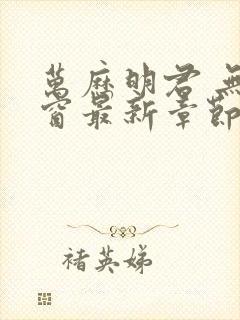 萬麻明君 無
窗最新章節
褚英娣